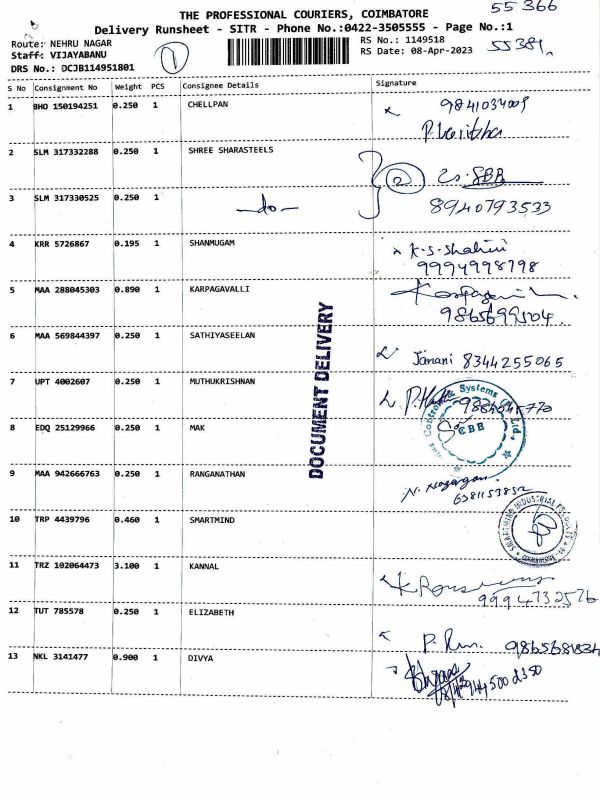 55 366
THE PROFESSIONAL COURIERS, COIMBATORE
Delivery Runsheet - SITR - Phone No.:0422-3505555 - Page No.:1
Route: NEHRU NAGAR
Staff: VIJAYABANU
DRS No.: DCJB114951801
1
RS No.: 1149518
RS Date: 08-Apr-2023
55381
S No Consignment No Weight PCS Consignee Details Signature
1 BHO 150194251 0.250 1 CHELLPAN 9841034009
2 SLM 317332288 0.250 1 SHREE SHARASTEELS
2
3 SLM 317330525 0.250 1 -do- 8940793533
4 KRR 5726867 0.195 1 SHANMUGAM K.S.Shalini
9994998798
5 MAA 288045303 0.890 1 KARPAGAVALLI
6 MAA 569844397 0.250 1 SATHIYASEELAN Janani 8344255065
7 UPT 4002607 0.250 1 MUTHUKRISHNAN
8 EDQ 25129966 0.250 1 MAK
Controls & Systems Ltd.
CBB
9 MAA 942666763 0.250 1 RANGANATHAN
10 TRP 4439796 0.460 1 SMARTMIND
SMARTMIND INDUSTRIAL PRODUCTS
11 TRZ 102064473 3.100 1 KANNAL
9994732576
12 TUT 785578 0.250 1 ELIZABETH
13 NKL 3141477 0.900 1 DIVYA
DOCUMENT DELIVERY